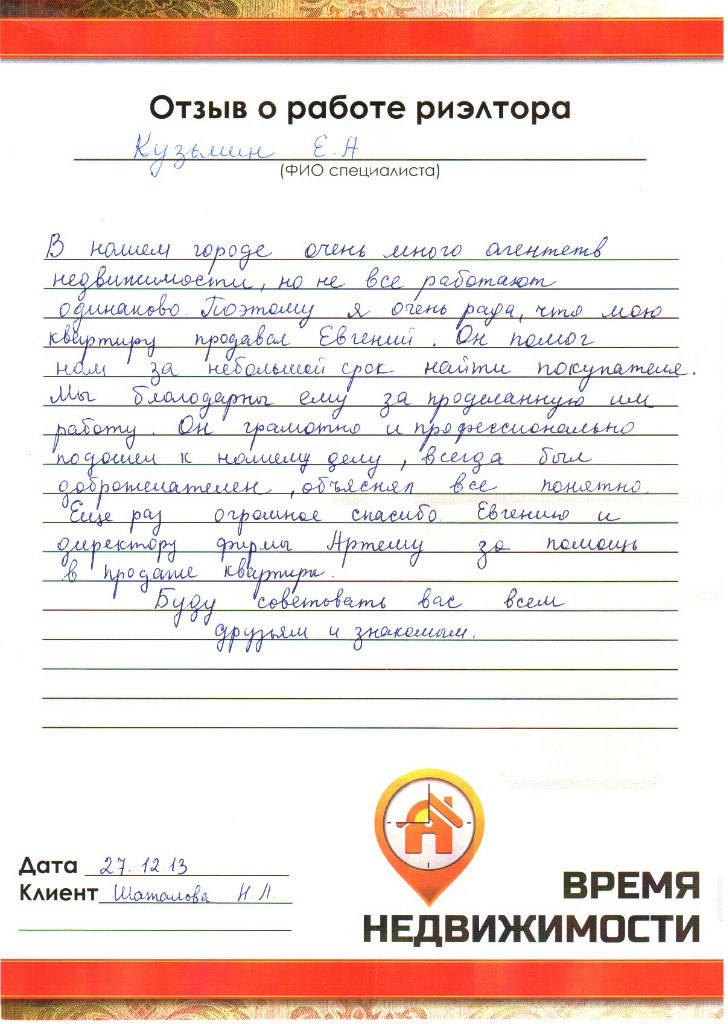 Отзыв о работе риэлтора
Кузьмин Е.А
(ФИО специалиста)
В нашем городе очень много агентств
недвижимости, но не все работают
одинаково. Поэтому я очень рада, что мою
квартиру продавал Евгений. Он помог
нам за небольшой срок найти покупателя.
Мы благодарны ему за проделанную им
работу. Он грамотно и профессионально
подошел к нашему делу, всегда был
доброжелателен, объяснял все понятно.
Еще раз огромное спасибо Евгению и
директору фирмы Артему за помощь
в продаже квартиры.
Буду советовать вас всем
друзьям и знакомым.
Дата 27.12.13
Клиент Шаталова Н.Л.
ВРЕМЯ
НЕДВИЖИМОСТИ